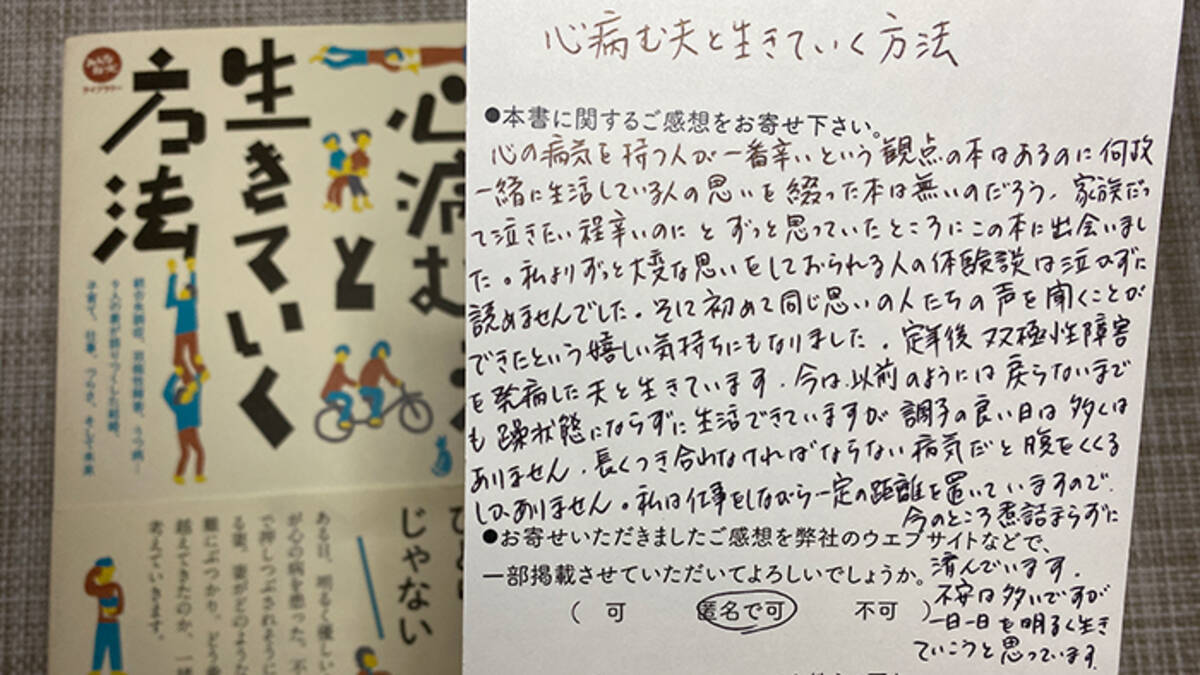 心病む
と
生きていく
方法
みんな
ねっと
ライブラリー
統合失調症、双極性障害、うつ病…
9人の妻が語りつくした結婚、
子育て、仕事、つらさ、そして未来
ひとり
じゃない
ある日、明るく優しい
が心の病を患った。不
で押しつぶされそうに
る妻。妻がどのような
難にぶつかり、どう
越えてきたのか、一
考えていきます。
心病む夫と生きていく方法
●本書に関するご感想をお寄せ下さい。
心の病気を持つ人が一番辛いという観点の本はあるのに何故
一緒に生活している人の思いを綴った本は無いのだろう、家族だっ
て泣きたい程辛いのにとずっと思っていたところにこの本に出会いまし
た。私よりずっと大変な思いをしておられる人の体験談は泣かずに
読めませんでした。そして初めて同じ思いの人たちの声を聞くことが
できたという嬉しい気持ちにもなりました。定年後双極性障害
を発病した夫と生きています。今は以前のようには戻らないまで
も躁状態にならずに生活できていますが調子の良い日は多くは
ありません。長くつき合わなければならない病気だと腹をくくる
しかありません。私は仕事をしながら一定の距離を置いていますので、
今のところ煮詰まらずに
済んでいます。
不安は多いですが
一日一日を明るく生き
ていこうと思っています。
●お寄せいただきましたご感想を弊社のウエブサイトなどで、
一部掲載させていただいてよろしいでしょうか。
( 可 匿名で可 不可 )